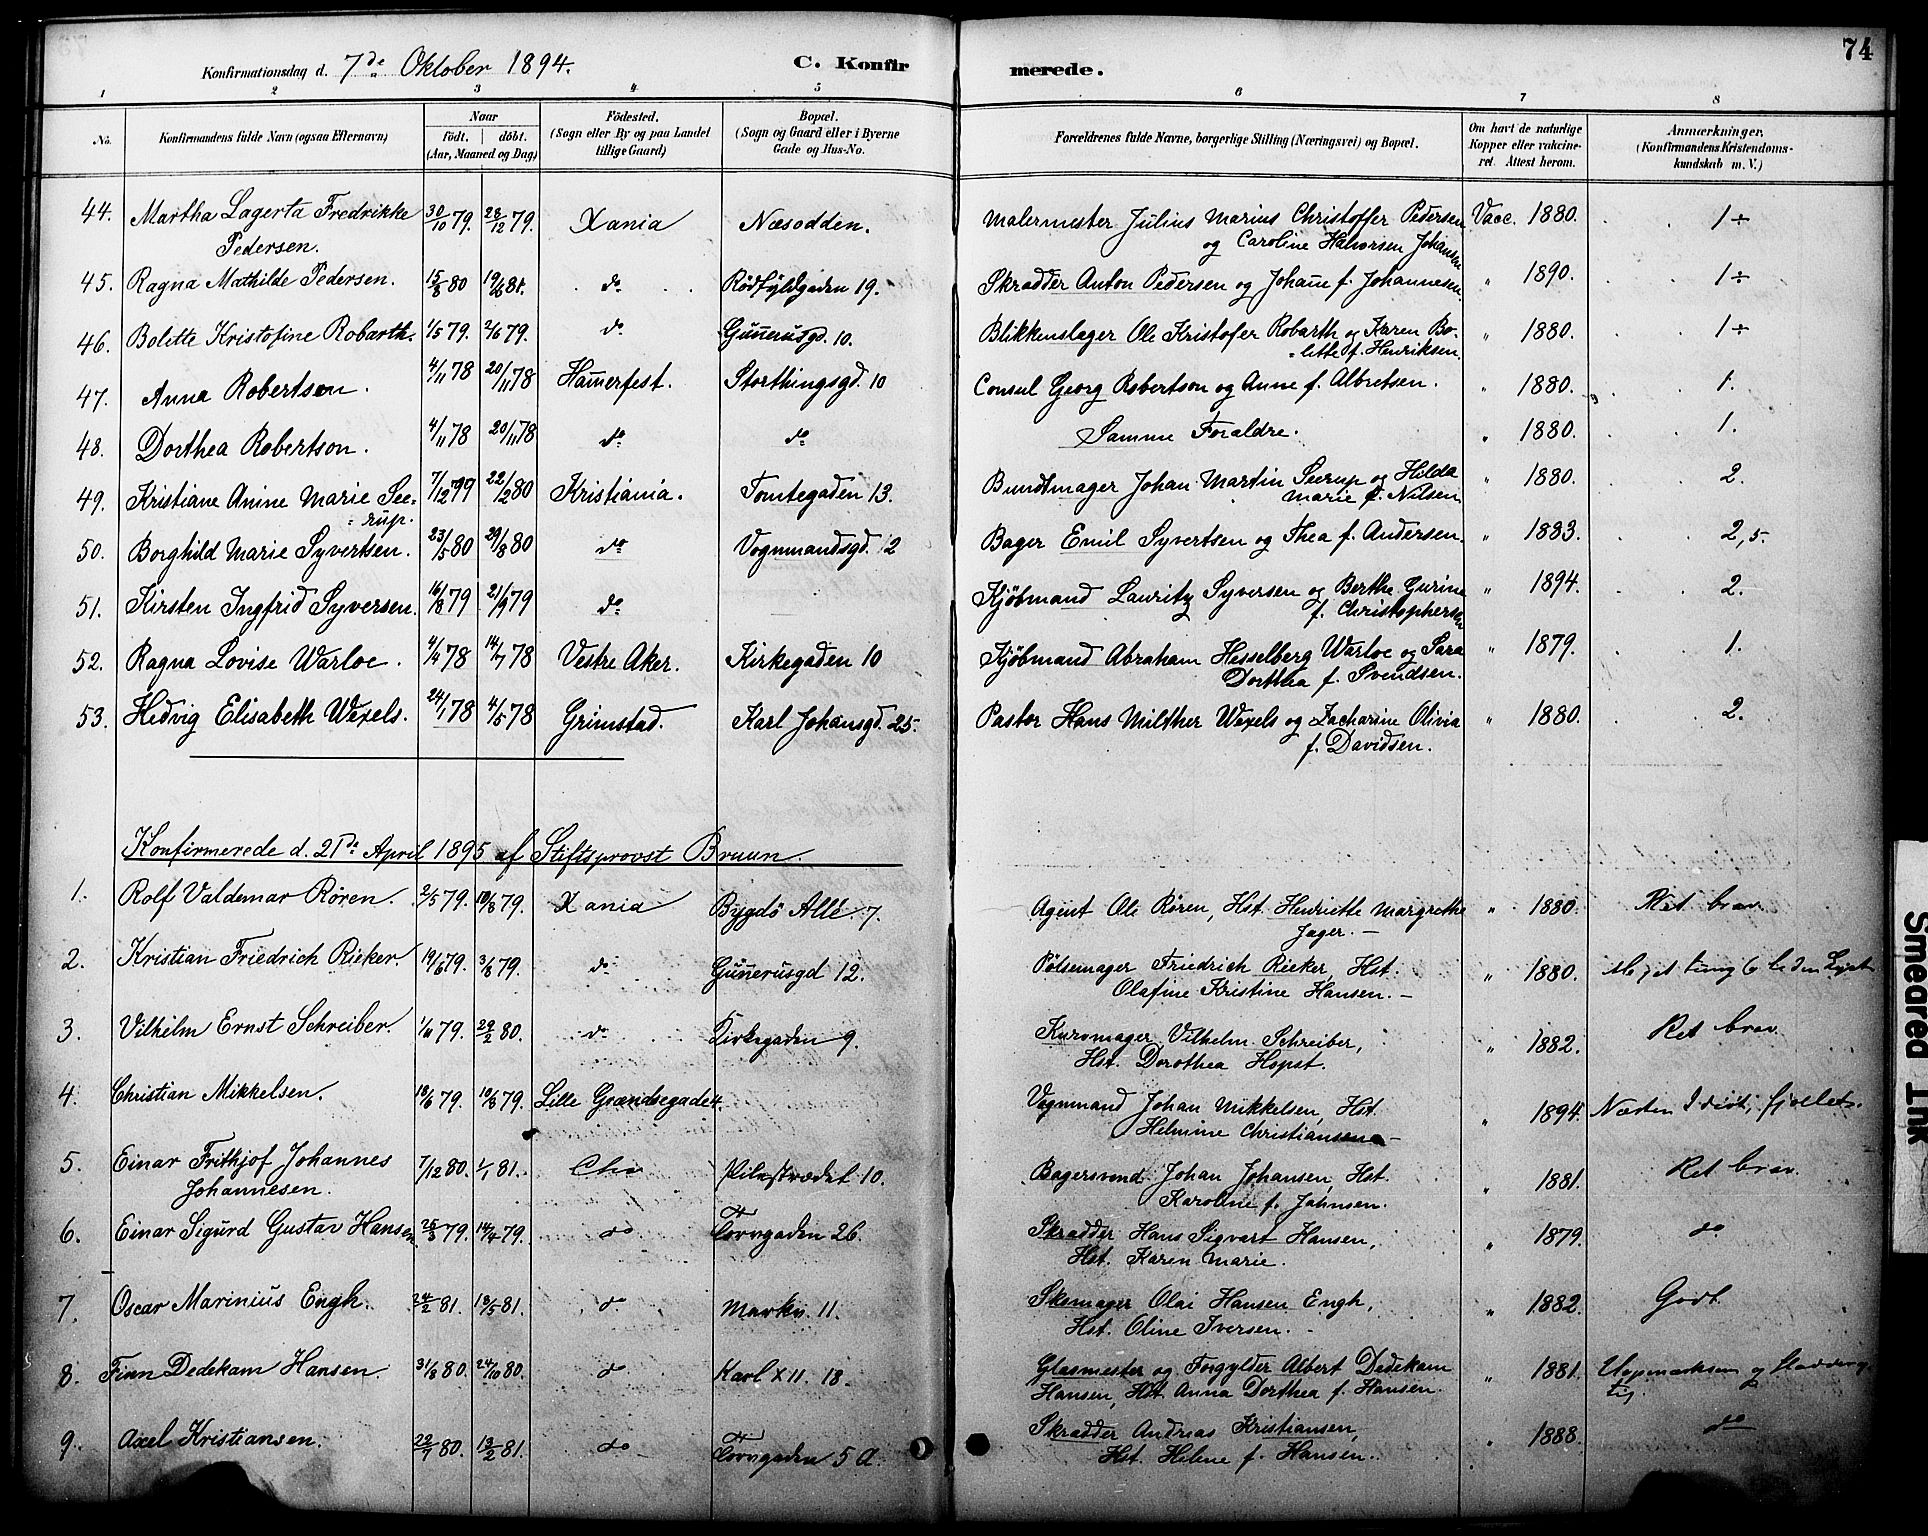 74
Konfirmationsdag d. 7de Oktober 1894. C. Konfirmerede.
1 2 3 4 5 6 7 8
No. Konfirmandens fulde Navn (ogsaa Efternavn) Naar födt. döbt. (Aar, Maaned og Dag) Födested. (Sogn eller By og paa Landet tillige Gaard) Bopæl. (Sogn og Gaard eller i Byerne Gade og Hus-No. Forældrenes fulde Navne, borgerlige Stilling (Næringsvei) og Bopæl. Om havt de naturlige Kopper eller vakcineret. Attest herom. Anmærkninger. (Konfirmandens Kristendomskundskab m. V.)
44. Martha Lagerta Fredrikke 30/10 79. 28/12 79. Xania Næsodden. Malermester Julius Marius Christoffer Pedersen Vacc. 1880. 1÷
Pedersen. og Caroline Halvorsen Johansen
45. Ragna Mathilde Pedersen. 15/8 80 19/6 81. do Rødfyldgaden 19. Skrædder Anton Pedersen og Johan̄e f. Johannesen. " 1890. 1÷
46. Bolette Kristofine Robarth. 1/5 79. 2/6 79. do Gun̄erusgd. 10. Blikkenslager Ole Kristofer Robarth og Karen Bo- " 1880. 1÷
=lette f. Henriksen.
47. Anna Robertson. 4/11 78 20/11 78 Ham̄erfest. Storthingsgd. 10 Consul Georg Robertson og Anne f. Albretsen. " 1880. 1.
48. Dorthea Robertson. 4/11 78 20/11 78 do do Samme Forældre. " 1880. 1.
49. Kristiane Anine Marie See= 7/12 79 22/2 80 Kristiania. Tomtegaden 13. Bundtmager Johan Martin Seerup og Hilda " 1880. 2.
=rup. Marie f. Nilsen
50. Borghild Marie Syvertsen. 23/5 80 29/8 80 do Vognmandsgd. 12 Bager Emil Syvertsen og Thea f. Andersen. " 1883. 2,5.
51. Kirsten Ingfrid Syversen. 16/8 79 21/9 79 do Kjöbmand Lauritz Syversen og Berthe Gurine " 1894. 2.
f. Christophersen
52. Ragna Lovise Warloe. 4/4 78 14/7 78 Vestre Aker. Kirkegaden 10 Kjöbmand Abraham Hesselberg Warloe og Sara " 1879. 1.
Dorthea f. Svendsen.
53. Hedvig Elisabeth Wexels. 24/1 78 4/5 78 Grimstad. Karl Johansgd. 25. Pastor Hans Milther Wexels og Zacharine Olivia " 1880. 2.
f. Davidsen.
Konfirmerede d. 21de April 1895 af Stiftsprovst Bruun.
1. Rolf Valdemar Røren. 2/5 79. 10/8 79. Xania Bygdø Allé 7. Agent Ole Røren, Hst. Henriette Margrethe " 1880. Ret brav
Jager.—
2. Kristian Friedrich Rieker. 19/6 79. 3/8 79. do Gun̄erusgd 12. Pølsemager Friedrich Rieker, Hst. " 1880. Meget tung liden Lyst
Olafine Kristine Hansen.—
3. Vilhelm Ernst Schreiber. 1/11 79. 29/2 80. do Kirkegaden 9. Kurvmager Vilhelm Schreiber, " 1882. Ret brav
Hst. Dorothea Hopst.
4. Christian Mikkelsen. 18/6 79. 10/8 79. Lille Grændsegade 4. Vognmand Johan Mikkelsen, Hst. " 1894. Næsten Idiot, fjollet.
Helmine Christiansen.—
5. Einar Frithjof Johannes 7/12 80. 1/1 81. Chra Pilestrædet 10. Bagersvend Johan Johansen Hst. " 1881. Ret brav.
Johannesen. Karoline f. Jahnsen.
6. Einar Sigurd Gustav Hansen. 25/3 79. 14/4 79. do Torvgaden 26. Skrædder Hans Sigvart Hansen, " 1879. do
Hst. Karen Marie.
7. Oscar Marinius Engh. 24/2 81. 18/5 81. do Markv. 11. Skomager Olai Hansen Engh, " 1882. Godt
Hst. Oline Iversen.
8. Finn Dedekam Hansen. 31/8 80. 24/10 80. do Karl XII. 18. Glasmester og Forgylder Albert Dedekam " 1881. Uopmærksom og
Hansen, Hst. Anna Dorthea f. Hansen.
9. Axel Kristiansen. 22/7 80. 13/2 81. do Torvgaden 5 A. Skrædder Andreas Kristiansen, " 1888. do
Hst. Helene f. Hansen.
Smeared Ink